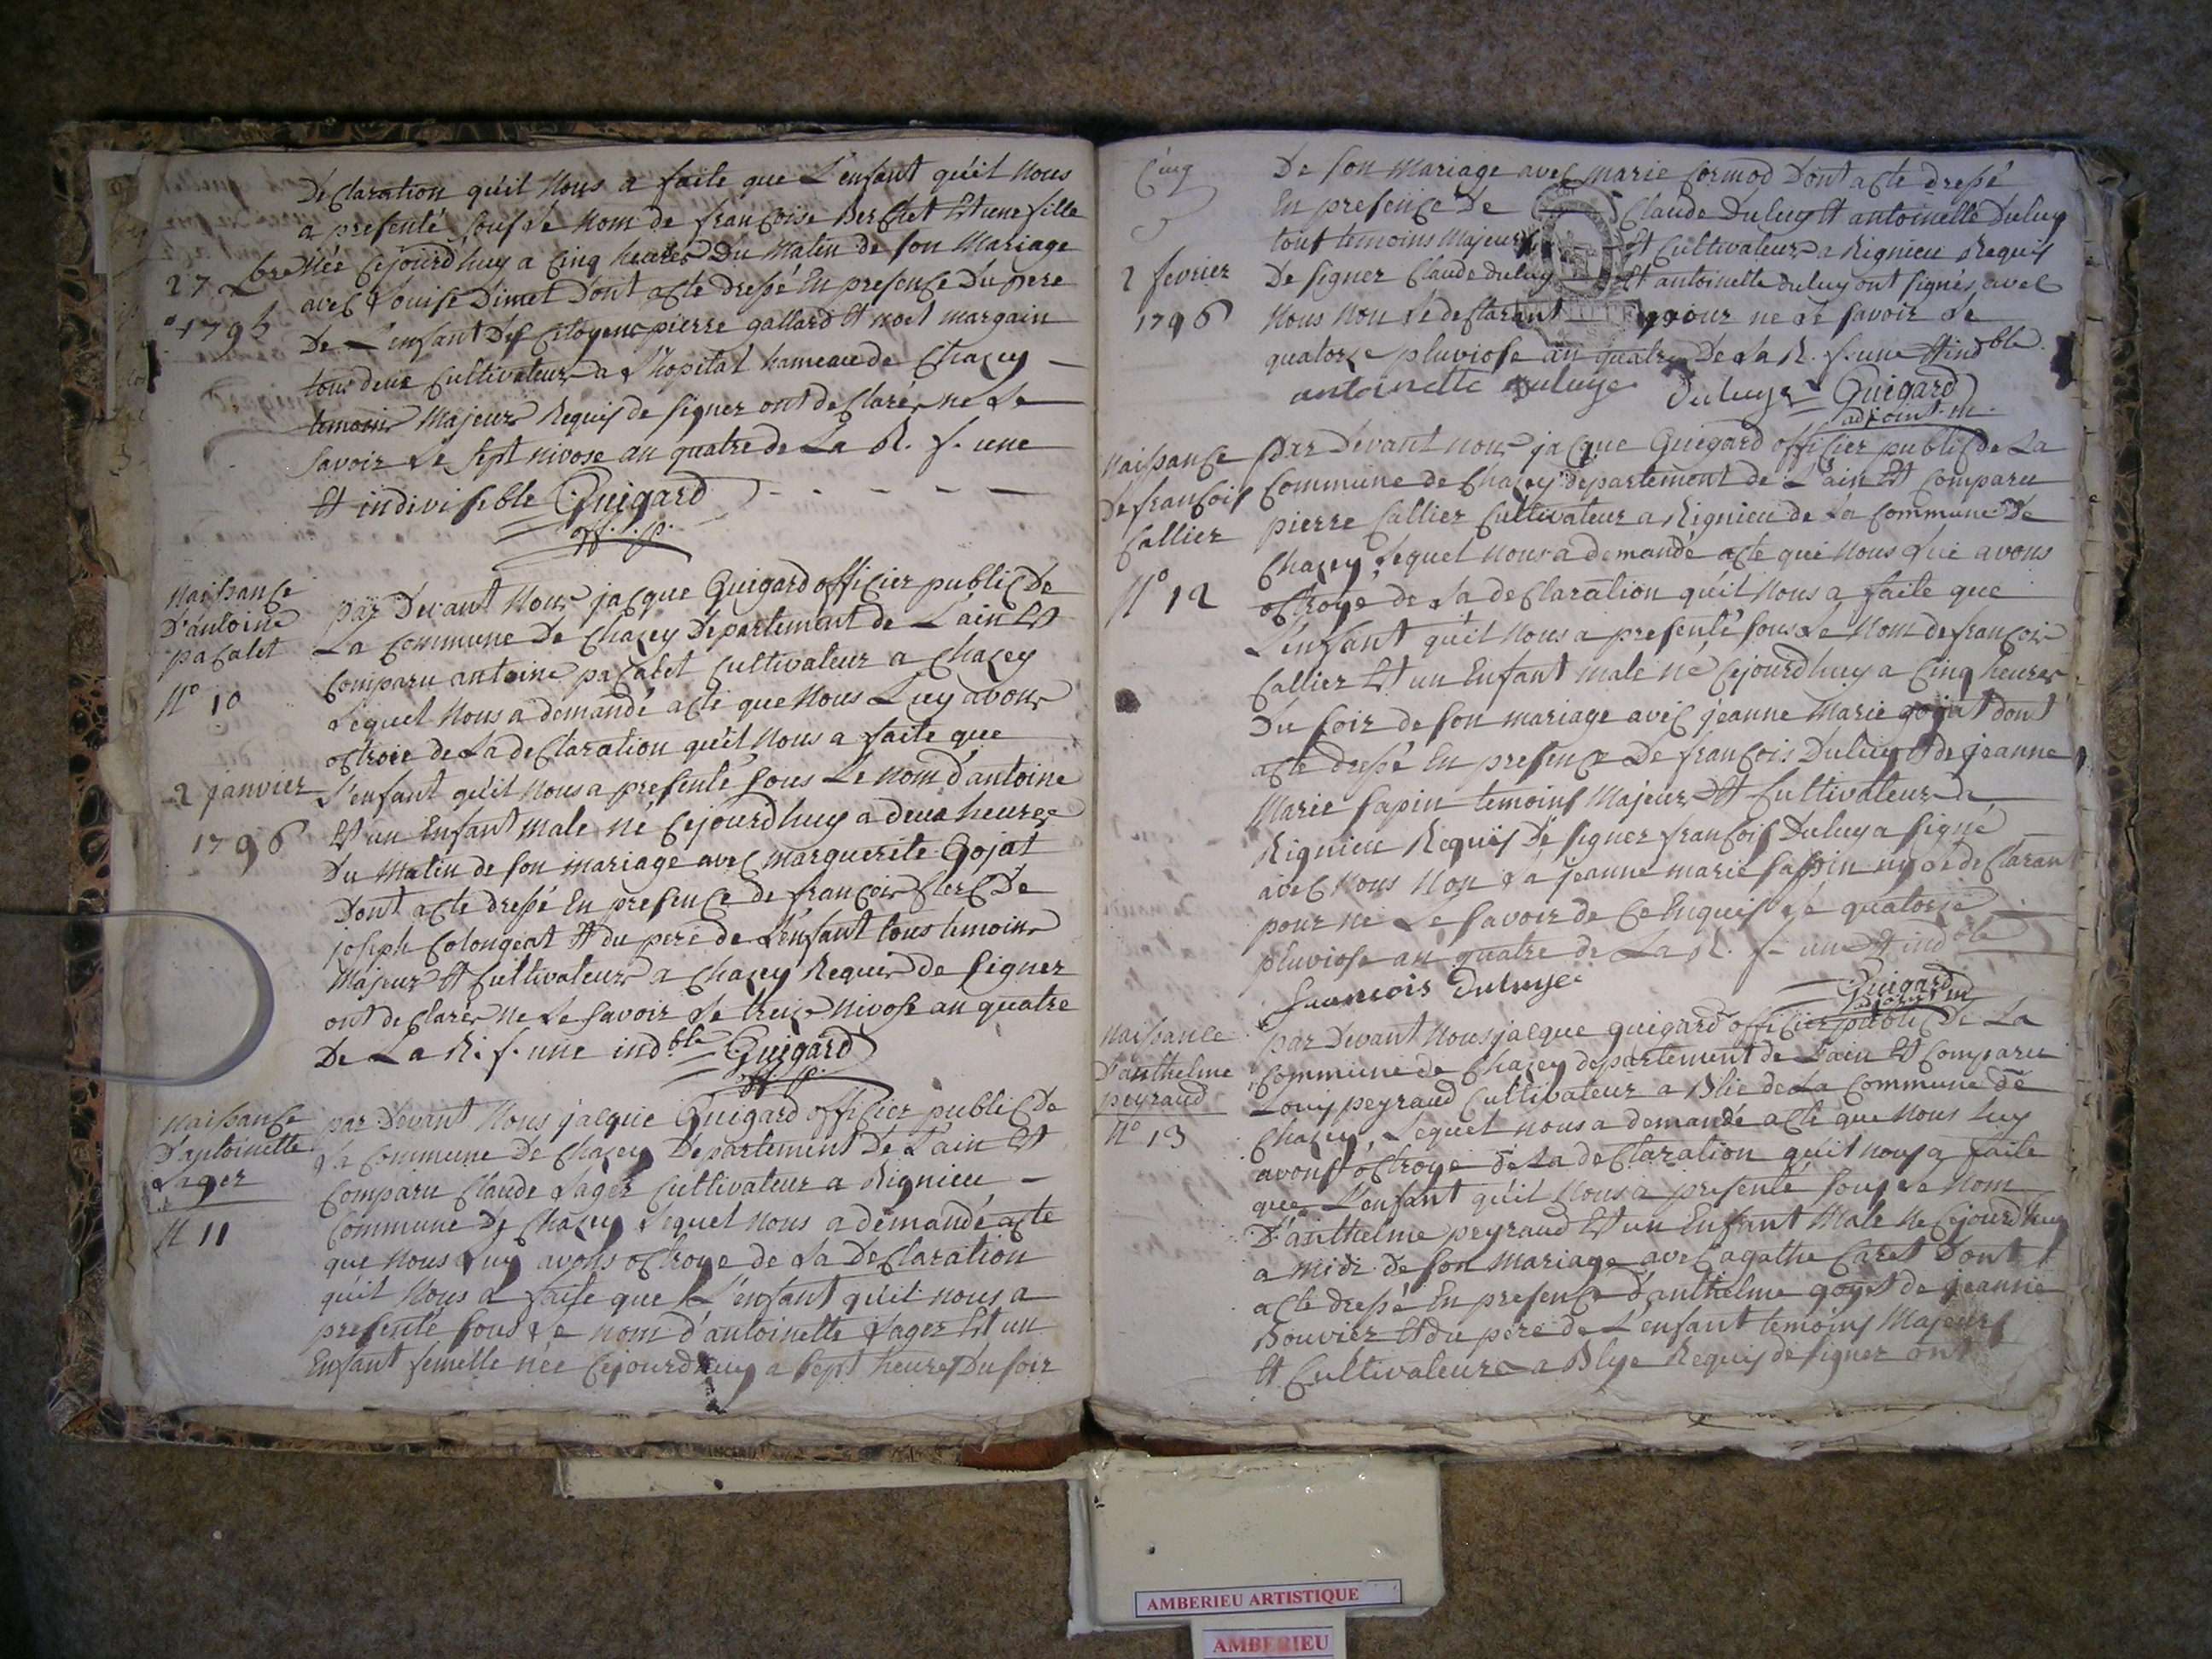 DeClaration qu'il Nous a faite que L'enfant qu'il Nous
a presenté sous le Nom de françoise Berchet Est une fille
Née Cejourd'huy a Cinq heures Du Matin de son Mariage
27 Xbre
avec Louise Dimet Dont acte dressé En presence Du pere
1795
De L'enfant Des Citoyens pierre gallard Et noel margain
tous deux Cultivateurs a L'hopital hameau de Chazey
temoins Majeurs Requis de signer ont deClarés ne Le
savoir Le sept nivose an quatre de La R. f. une
Et indivisible Guigard
off. p.
Naissance
D'antoine
pacalet
N° 10
2 janvier
1796
par Devant Nous jacque Guigard officier public De
La Commune De Chazey Departement de L'ain Est
Comparu antoine paCalet Cultivateur a Chazey
Lequel Nous a demandé acte que Nous Luy avons
octroié de La deClaration qu'il Nous a faite que
L'enfant qu'il Nous a presenté sous Le nom d'antoine
Est un Enfant Male né Cejourdhuy a deux heures
Du Matin de son mariage avec Marguerite Gojat
Dont acte dressé En presence de françois Clerc De
joseph Colongeat Et du pere de L'enfant tous temoins
Majeurs Et Cultivateurs a Chazey Requis de signer
ont declarés ne Le savoir Le treize Nivose an quatre
De La R. f. une ind.ble Guigard
off. p.
Naissance
D'antoinette
Lager
N 11
par Devant Nous jacque Guigard officier public De
La Commune De Chazey Departement De L'ain Est
Comparu Claude Lager Cultivateur a Rignieu
Commune De Chazey Lequel Nous a demandé acte
que Nous Luy avons octroyé de La DeClaration
qu'il Nous a faite que L'enfant qu'il nous a
presenté sous Le nom d'antoinette Lager Est un
Enfant femelle née Cejourdhuy a sept heures Du soir
Cinq
2 fevrier
1796
De son Mariage avec Marie Cormod Dont acte dressé
En presence De Claude Duluy Et antoinette Duluy
tous temoins Majeurs Et Cultivateurs a Rignieu Requis
De signer Claude duluy Et antoinette duluy ont signés avec
Nous Non Le declarant pour ne Le savoir Le
quatorze pluviose an quatre De La R. f. une Et ind.ble
antoinette duluye Duluye Guigard
adjoint. m.
Naissance
De françois
Callier
N° 12
par Devant nous jacque Guigard officier public de La
Commune de Chazey departement de L'ain Est Comparu
pierre Callier Cultivateur a Rignieu de La Commune De
Chazey Lequel Nous a demandé acte que Nous Lui avons
octroyé de La deClaration qu'il Nous a faite que
L'enfant qu'il Nous a presenté sous Le Nom de françois
Callier Est un Enfant male né Cejourdhuy a Cinq heures
Du soir de son mariage avec jeanne Marie gojat dont
acte dressé En presence De françois Duluy Et de jeanne
Marie sapin temoins Majeurs Et Cultivateurs a
Rignieu Requis De signer françois Duluy a signé
avec Nous Non La jeanne marie sappin ny Le deClarant
pour ne Le savoir de Ce Enquis Le quatorze
pluviose an quatre de La R. f. une Et ind.ble
francois Duluye Guigard
adjoint m
Naissance
D'anthelme
peyraud
N° 13
par Devant Nous jacque guigard officier public De La
Commune de Chazey departement de L'ain Est Comparu
Louis peyraud Cultivateur a Blie de La Commune de
Chazey, Lequel nous a demandé acte que Nous Luy
avons octroyé de La deClaration qu'il Nous a faite
que L'enfant qu'il Nous a presenté sous Le Nom
D'anthelme peyraud Est un Enfant Male Né Cejourdhuy
a midi de son Mariage avec agathe Caret Dont
acte dressé En presence d'anthelme goyet de jeanne
Bouvier Et du pere de L'enfant temoins Majeurs
Et Cultivateurs a Blye Requis de signer ont
AMBERIEU ARTISTIQUE
AMBERIEU